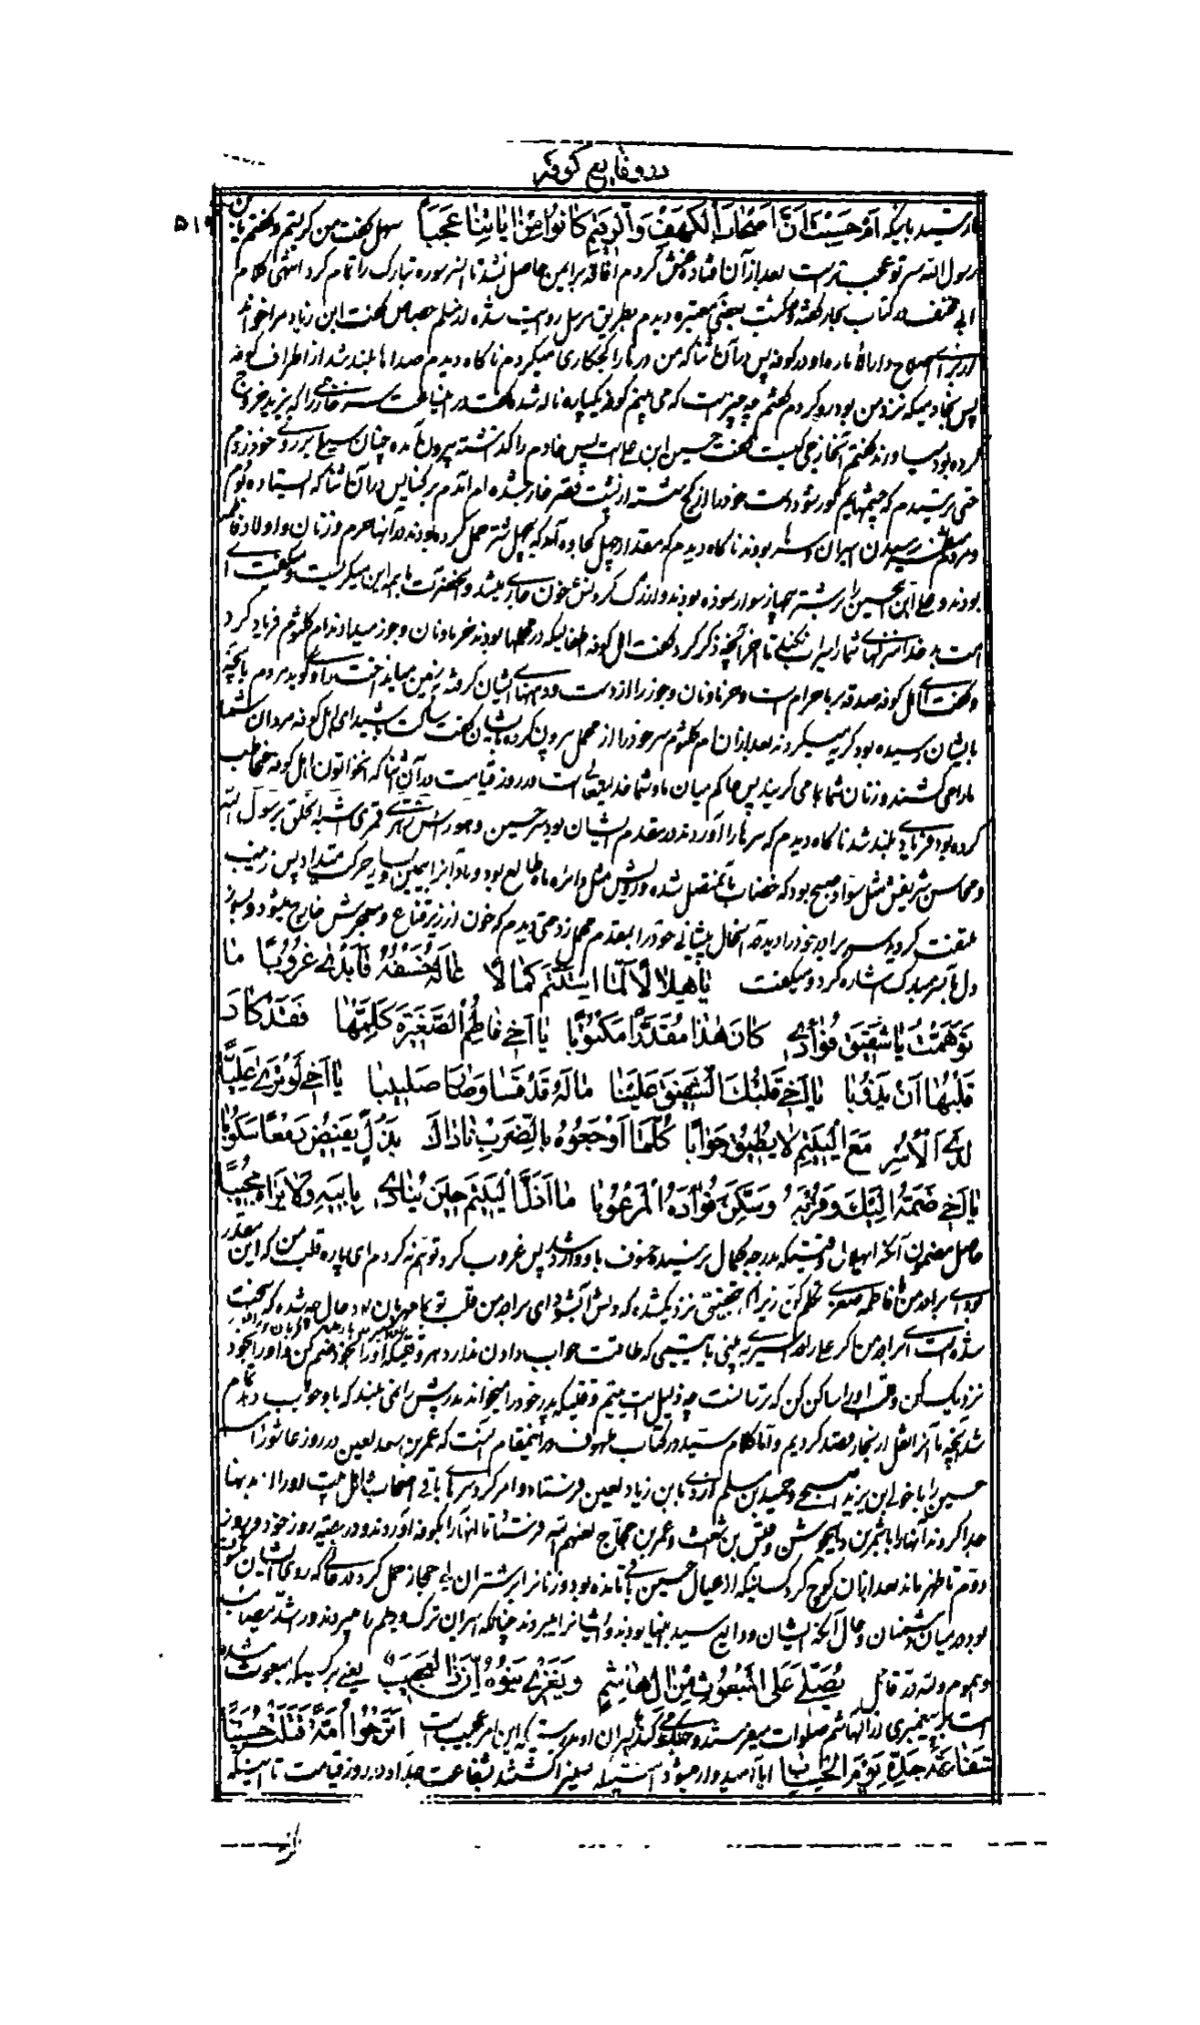 در وقایع کوفه
۵۱۹
رسید بآیه أَمْ حَسِبْتَ أَنَّ أَصْحَابَ الْكَهْفِ وَالرَّقِيمِ كَانُوا مِنْ آيَاتِنَا عَجَبًا سهل گفت من گریستم و گفتم یابن
رسول الله سر تو عجب‌تر است بعد از آن افتاده غش کردم افاقه برای من حاصل نشد تا آنسر سوره مبارک را تمام کرد انتهی کلام
ابی مخنف در کتاب بحار گفته و در کتب معتبره دیدم بطریق مرسل روایت شده از مسلم جصاص گفت ابن زیاد مرا خواند
از برای اصلاح دار الاماره او در کوفه پس در آن اثنا که من درها را گچکاری میکردم ناگاه دیدم صداها بلند شد از اطراف کوفه
پس بخادمیکه نزد من بود رو کردم گفتم چه چیز است که می بینم کوفه یکپاره ناله شده گفت در این ساعت سر خارجی را که بر یزید خروج
کرده بود میاورند گفتم آنخارجی کیست گفت حسین ابن علی است پس خادم را گذاشته بیرون آمده چنان سیلی بر روی خود زدم
حتی ترسیدم که چشمهایم کور شود و دست خود را از گچ شسته از پشت قصر خارج شده ام آمدم بر کناس پس در آن اثنا که ایستاده بودم
و مردم منتظر رسیدن اسیران و سرها بودند ناگاه دیدم که مقدار چهل کجاوه آمد که بچهل شتر حمل کرده بودند در آنها حرم و زنان و اولاد فاطمه
بودند و علی ابن الحسین را بر شتر بی جهاز سوار نموده بودند و از رگ گردنش خون جاری میشد و آنحضرت با همه این میگریست و میگفت ای
امت بد خدا منزلهای شما را سیراب نکند تا آخر آنچه ذکر کرد گفت اهل کوفه اطفالیکه در محملها بودند خرما و نان و جوز میدادند ام کلثوم فریاد کرد
و گفت ای اهل کوفه صدقه بر ما حرام است و خرما و نان و جوز را از دست و دهنهای ایشان گرفته بزمین میانداخت راوی گوید مردم بآنچه
بایشان رسیده بود گریه میکردند بعد از آن ام کلثوم سر خود را از محمل بیرون کرده بایشان گفت ساکت باشید ای اهل کوفه مردان شما
ما را می کشند و زنان شما بما می گریند پس حاکم میان ما و شما خدایتعالی است در روز قیامت در آن اثنا که آنخواتون اهل کوفه مخاطب
کرده بود فریادی بلند شد ناگاه دیدم که سرها را آوردند در مقدم ایشان بود سر حسین و هو رأس زهری قمری اشبه الخلق برسول الله
و محاسن شریفش مثل سواد سبج بود که خضاب بآن متصل شده و رویش مثل دائره ماه طالع بود و باد آنرا بیمین و یسار حرکت میداد پس زینب
ملتفت گردید سر برادر خود را دید در آنحال پیشانی خود را بمقدم محمل زد حتی دیدم که خون از زیر قناع و معجرش خارج میشود و بسوز
دل بآنسر مبارک اشاره کرد و میگفت يا هلالا لما استتم كمالا غاله خسفه فأبدى غروبا ما
توهمت يا شقيق فؤادي كان هذا مقدرا مكتوبا يا أخي فاطم الصغيرة كلمها فقد كاد
قلبها أن يذوبا يا أخي قلبك الشفيق علينا ما له قد قسا وصار صليبا يا أخي لو ترى عليا
لدى الأسر مع اليتم لا يطيق جوابا كلما أوجعوه بالضرب ناداك بذل يفيض دمعا سكوبا
يا أخي ضمه إليك وقربه وسكن فؤاده المرعوبا ما أذل اليتيم حين ينادي بأبيه ولا يراه مجيبا
حاصل مضمون آنکه ای هلال وقتیکه بدرجه کمال رسیده خسوف باو وارد شد پس غروب کرد توهم نه کردم ای پاره قلب من که این مقدر
بود ای برادر من با فاطمه صغری تکلم کن زیرا که بتحقیق نزدیکشده که دلش آب شود ای برادر من قلب تو بما مهربان بود حال چه شده که سخت
شده است ای برادر من اگر علی را در اسیری به بینی با یتیمی که طاقت جواب دادن ندارد
نزدیک کن و قلب او را ساکن کن که ترسانست چه ذلیل است یتیم وقتیکه پدر خود را میخواند و پدرش را نمی بیند که باو جواب دهد تمام
شد آنچه ما آنرا نقل از بحار قصد کردیم و اما کلام سید در کتاب لهوف در اینمقام آنست که عمر بن سعد لعین در روز عاشورا سر
حسین را با خولی ابن یزید اصبحی و حمید بن مسلم ازدی بابن زیاد لعین فرستاد و امر کرد سرهای باقی اصحاب و اهل بیت او را از بدنها
جدا کردند آنها را با شمر بن ذیجوشن و قیس بن اشعث و عمر بن حجاج لعنهم الله فرستاد تا آنها را بکوفه آوردند و در بقیه روز خود و روز
دوم تا ظهر ماند بعد از آن کوچ کرد کسانیکه از عیال حسین باقی مانده بود و زنانرا بر شتران بی جهاز حمل کردند
بود در میان دشمنان و حال آنکه ایشان ودایع سید انبیا بودند و ایشانرا میبردند چنانکه اسیران ترک و دیلم را میبرند در اشد مصائب
و هموم و لله در قائل يصلى على المبعوث من آل هاشم ويغزى بنوه إن ذا لعجيب یعنی بر کسیکه مبعوث شده
است به پیغمبری از آل هاشم صلوات میفرستند و جنگ می کنند با پسران او بدرستیکه این امر عجیب است أترجو أمة قتلت حسينا
شفاعة جده يوم الحساب آیا امیدوار میشود امتیکه حسین را کشتند شفاعت جد او در روز قیامت تا اینکه